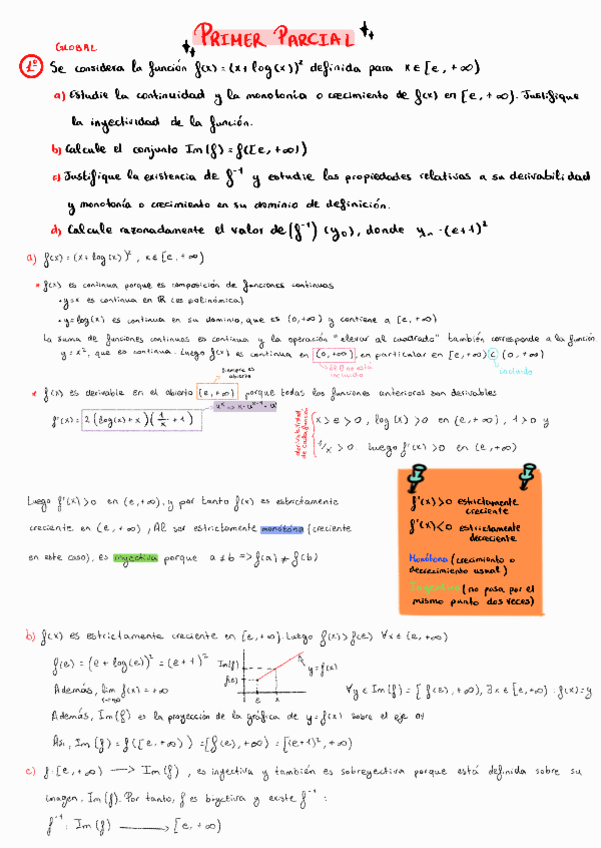 PRIMER PARCIAL
GLOBAL
1º Se considera la función f(x) = (x + log(x))² definida para x ∈ [e, +∞)
a) Estudie la continuidad y la monotonía o crecimiento de f(x) en [e, +∞). Justifique
la inyectividad de la función.
b) Calcule el conjunto Im(f) = f([e, +∞))
c) Justifique la existencia de f⁻¹ y estudie las propiedades relativas a su derivabilidad
y monotonía o crecimiento en su dominio de definición.
d) Calcule razonadamente el valor de (f⁻¹)(y₀), donde yₙ = (e+1)²
a) f(x) = (x + log(x))², x ∈ [e, +∞)
* f(x) es continua porque es composición de funciones continuas
• y = x es continua en ℝ (es polinómica)
• y = log(x) es continua en su dominio, que es (0, +∞) y contiene a [e, +∞)
La suma de funciones continuas es continua y la operación "elevar al cuadrado" también corresponde a la función
y = x², que es continua. Luego f(x) es continua en (0, +∞), en particular en [e, +∞) ⊂ (0, +∞)
el 0 no está incluido
incluido
siempre es abierto
* f(x) es derivable en el abierto (e, +∞) porque todas las funciones anteriores son derivables
f'(x) = 2(log(x) + x)(1/x + 1)
derivabilidad de cada función
x > e > 0, log(x) > 0 en (e, +∞), 1 > 0 y
1/x > 0. Luego f'(x) > 0 en (e, +∞)
Luego f'(x) > 0 en (e, +∞), y por tanto f(x) es estrictamente
creciente en (e, +∞). Al ser estrictamente monótona (creciente
en este caso), es inyectiva porque a ≠ b => f(a) ≠ f(b)
f'(x) > 0 estrictamente creciente
f'(x) < 0 estrictamente decreciente
Monótona (crecimiento o decrecimiento usual)
Inyectiva (no pasa por el mismo punto dos veces)
b) f(x) es estrictamente creciente en [e, +∞). Luego f(x) > f(e) ∀x ∈ (e, +∞)
f(e) = (e + log(e))² = (e + 1)²
Im(f)
f(e)
y = f(x)
e x
Además, lim f(x) = +∞
x→+∞
∀y ∈ Im(f) = [f(e), +∞), ∃x ∈ [e, +∞) : f(x) = y
Además, Im(f) es la proyección de la gráfica de y = f(x) sobre el eje OY
Así, Im(f) = f([e, +∞)) = [f(e), +∞) = [(e+1)², +∞)
c) f: [e, +∞) → Im(f), es inyectiva y también es sobreyectiva porque está definida sobre su
imagen, Im(f). Por tanto, f es biyectiva y existe f⁻¹ :
f⁻¹ : Im(f) → [e, +∞)